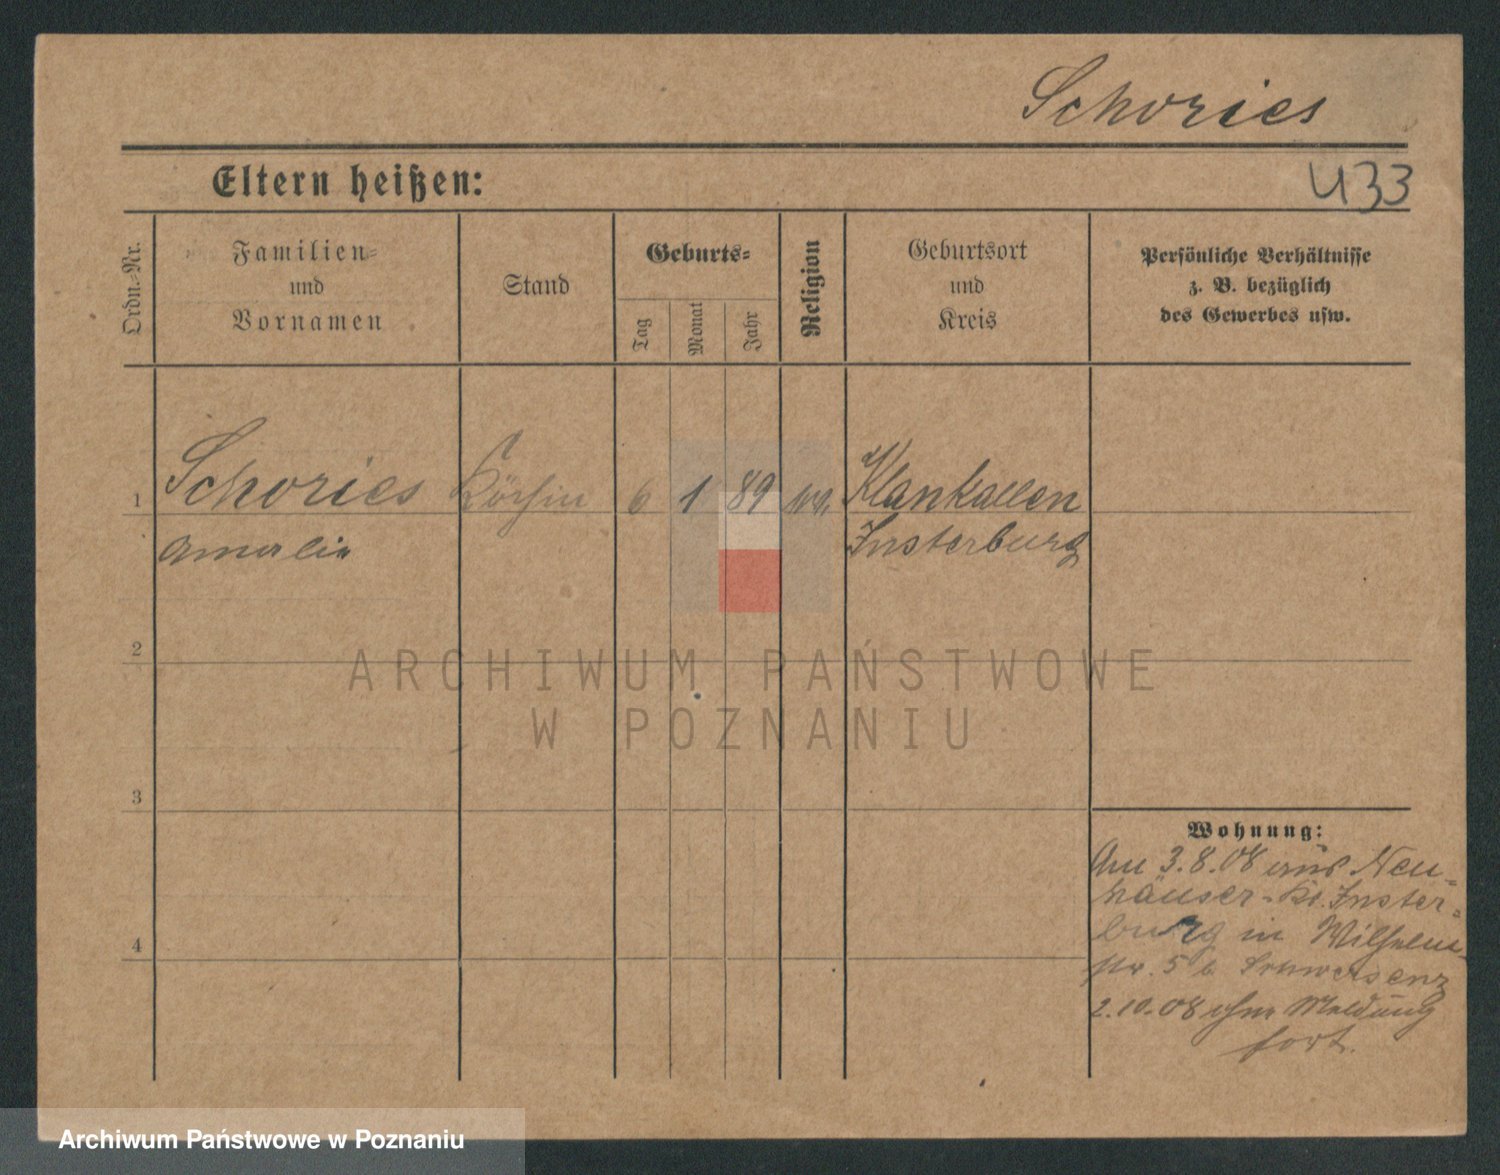 Schories
433
Eltern heißen:
Ordn.-Nr.
Familien-
und
Vornamen
Stand
Geburts-
Tag
Monat
Jahr
Religion
Geburtsort
und
Kreis
Persönliche Verhältnisse
z. B. bezüglich
des Gewerbes usw.
1
Schories
Köchin
6
1
89
Klankallen
Amalie
Insterburg
2
ARCHIWUM PAŃSTWOWE
W POZNANIU
3
Wohnung:
Am 3.8.08 aus Neu-
häuser-Kr. Inster-
burg in Wilhelm-
str. 5 b Schwersenz
2.10.08 ohne Meldung
fort.
4
Archiwum Państwowe w Poznaniu